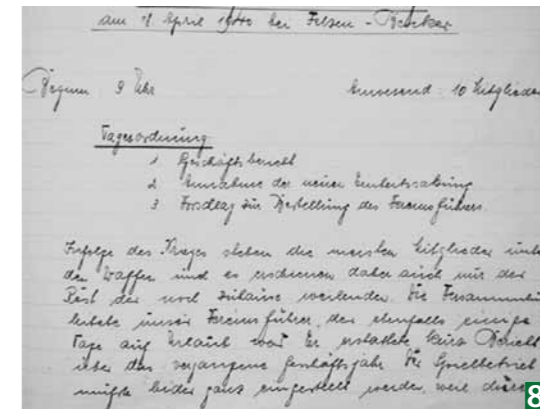 am 18. April 1940 bei Felsen-Becker
Beginn 9 Uhr Anwesend: 10 Mitglieder
Tagesordnung
1 Geschäftsbericht
2 Annahme der neuen Einheitssatzung
3 Vorschlag zur Bestellung des Vereinsführers.
Infolge des Krieges stehen die meisten Mitglieder unte
den Waffen und es erschienen daher auch nur der
Rest der noch zuhause weilenden. Die Versammlu
leitete unser Vereinsführer, der ebenfalls einige
Tage auf Urlaub war. Er erstattete kurz Bericht
über das vergangene Geschäftsjahr. Der Spielbetrieb
mußte leider ganz eingestellt werden, weil
8